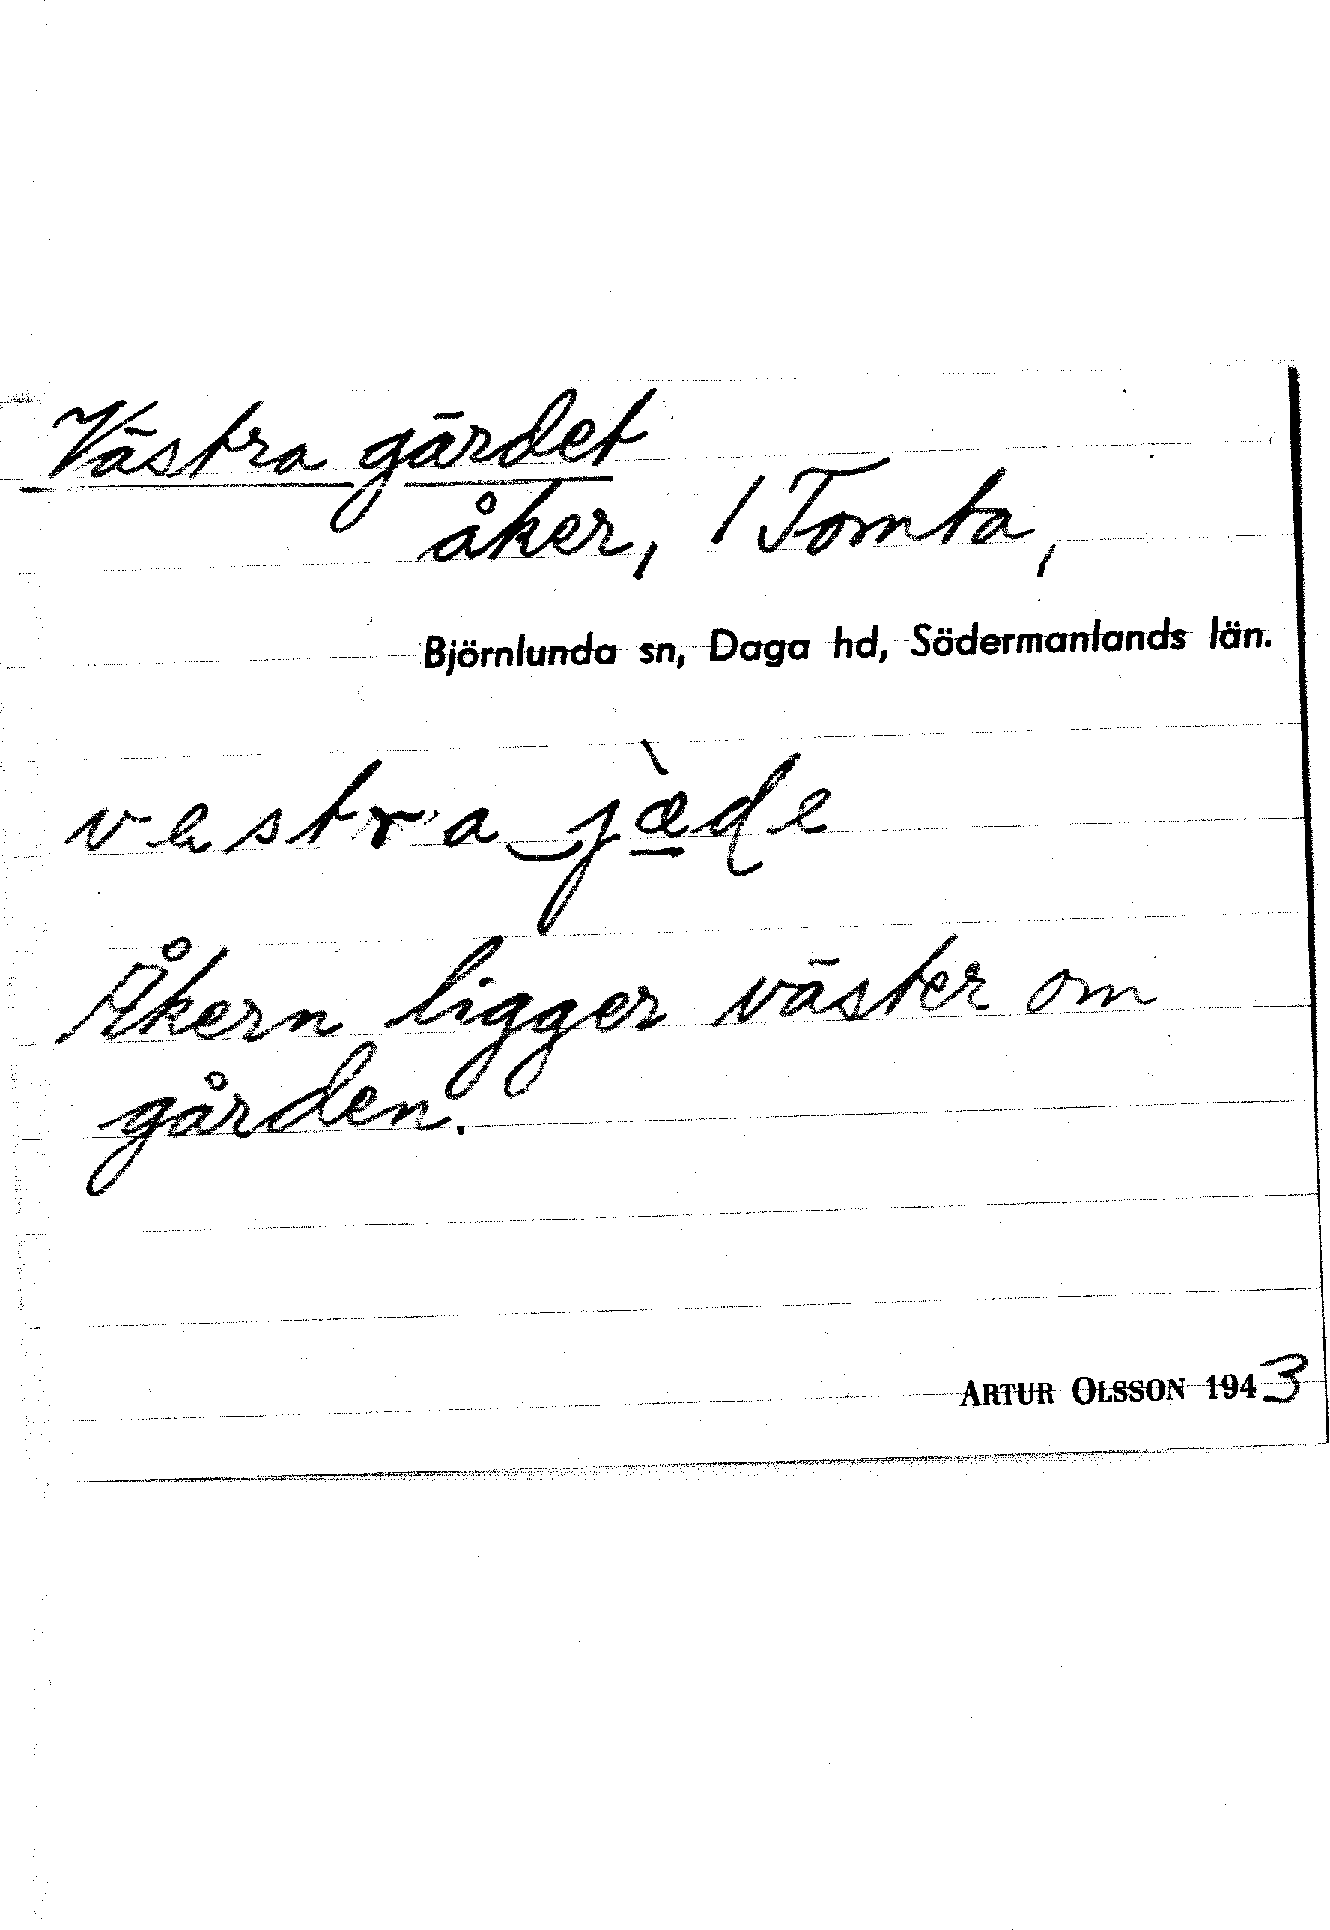 Västra gärdet
åker, 1 Tomta,
Björnlunda sn, Daga hd, Södermanlands län.
vestra‿jæ̱̀ɖe
Åkern ligger väster om
gården.
ARTUR OLSSON 1943